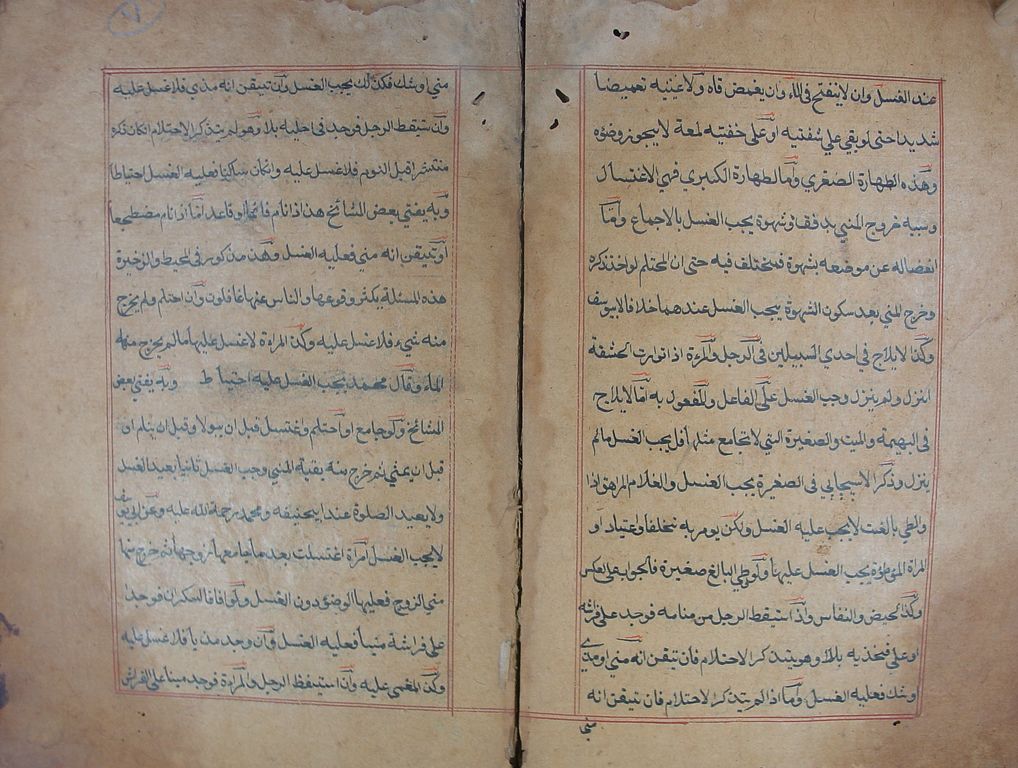 عند الغسل وان لا ينفتح في الماء وان يغمض فاه ولا عينيه تغميضا
شديدا حتى لو بقي على شفتيه او على خفتيه لمعة لا يجوز وضوٓه
وهذه الطهارة الصغري واما الطهارة الكبري فهي الاغتسال
وسببه خروج المني بدفقا وشهوة يجب الغسل بالاجماع واما
انفصاله عن موضعه بشهوة فمختلف فيه حتى ان المحتلم لو اخذ ذكره
وخرج المني بعد سكون الشهوة يجب الغسل عندهما خلافا لابي يوسف
وكذا لايلاج في احدي السبيلين في الرجل والمراة اذا توارت الحشفة
انزل ولم ينزل وجب الغسل على الفاعل والمفعول به اما الايلاج
في البهيمة والميت والصغيرة التي لا تجامع مثلها فلا يجب الغسل مالم
ينزل وذكر الاسبيجابي في الصغيرة يجب الغسل والغلام المراهق اذا
وطي بالغت لا يجب عليه الغسل ولكن يومر به تخلقا واعتيادا و
المراة الموطؤة يجب الغسل عليها ولو وطي البالغ صغيرة فالجواب على العكس
وكذا لحيض والنفاس واذا استيقظ الرجل من منامه فوجد على فرشه
او على فخذيه بللا وهو يتذكر الاحتلام فان تيقن انه مني او مذي
وشك فعليه الغسل واما اذا لم يتذكر لاحتلام فان تيقن انه
مني
مني او شك فكذلك يجب الغسل وان تيقن انه مذي فلا غسل عليه
وان ستيقظ الرجل فوجد في احليه بللا وهو لم يتذكر الاحتلام انكان ذكره
منتشرا قبل النوم فلا غسل عليه وانكان ساكنا فعليه الغسل احتياطا
وبه يفتي بعض المشائخ هذا اذا نام قائما او قاعدا اما اذا نام مضطجعا
او تيقن انه مني فعليه الغسل وهذا مذكور في المحيط والذخيرة
هذه المسئلة يكثر وقوعها والناس عنها غافلون وان احتلم ولم يخرج
منه شيء فلا غسل عليه وكذا المراءة لا غسل عليها مالم يخرج منها
الماء وقال محمد يجب الغسل عليه احتياطا وبه يفتي بعض
المشائخ ولو جامع او احتلم وغتسل قبل ان يبول او قبل ان ينام او
قبل ان يمني ثم خرج منه بقية المني وجب الغسل ثانيا يعيد الغسل
ولا يعيد الصلوة عند ابيحنيفه ومحمد رحمة الله عليه وعن ابي يوسف
لا يجب الغسل امراة اغتسلت بعد ما جامعها زوجها ثم خرج منها
مني الزوج فعليها الوضوء دون الغسل ولو افاق السكران فوجد
على فراشه منيا فعليه الغسل وان وجد مذيا فلا غسل عليه
وكذا المغمي عليه وان استيقظ الرجل والمراءة فوجد منيا على الفراش